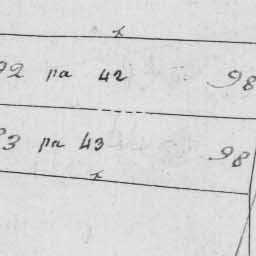 92 pa 42 98
93 pa 43 98